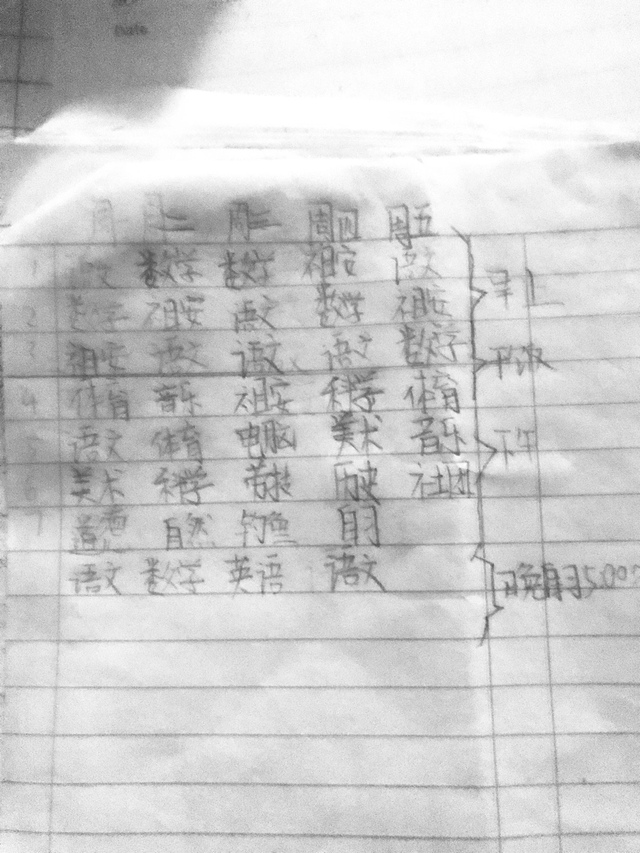 Date
周 周二 周三 周四 周五
1 语文 数学 数学 祖安 语文
2 数学 祖安 语文 数学 祖安 早上
3 祖安 语文 语文 语文 数学
4 体育 音乐 祖安 科学 体育
5 语文 体育 电脑 美术 音乐 下午
6 美术 科学 劳技 历史 社团
7 道德 自然 钓鱼 自习
语文 数学 英语 语文